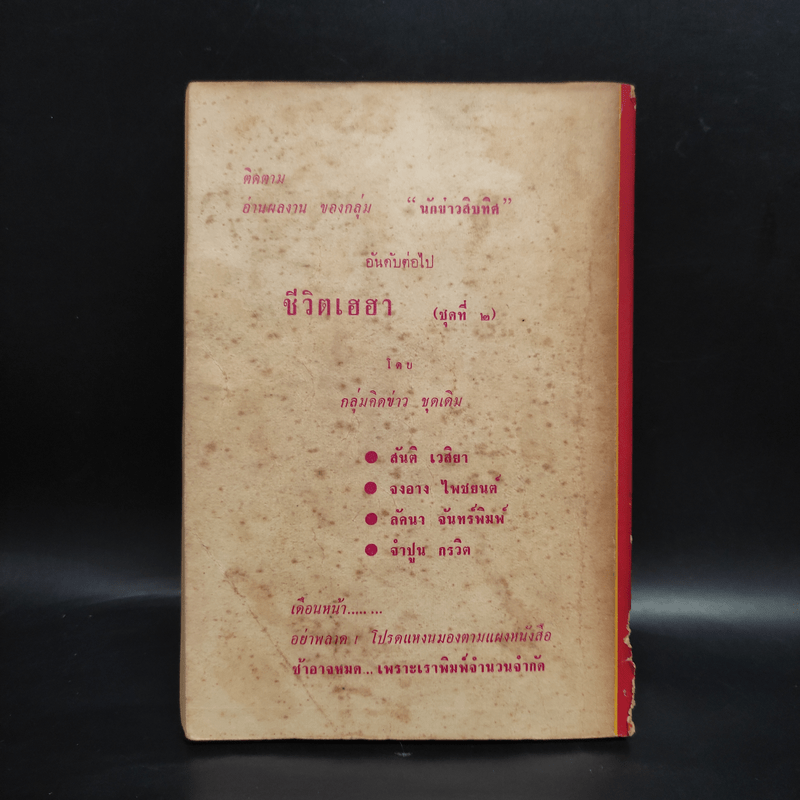 ติดตาม
อ่านผลงาน ของกลุ่ม “นักข่าวสิบทิศ”
อันดับต่อไป
ชีวิตเฮฮา (ชุดที่ ๒)
โดย
กลุ่มคิดข่าว ชุดเดิม
● สันติ เวสิยา
● จงอาง ไพชยนต์
● ลัคนา จันทร์พิมพ์
● จำปูน กรวิต
เดือนหน้า........
อย่าพลาด! โปรดแหงนมองตามแผงหนังสือ
ช้าอาจหมด...เพราะเราพิมพ์จำนวนจำกัด